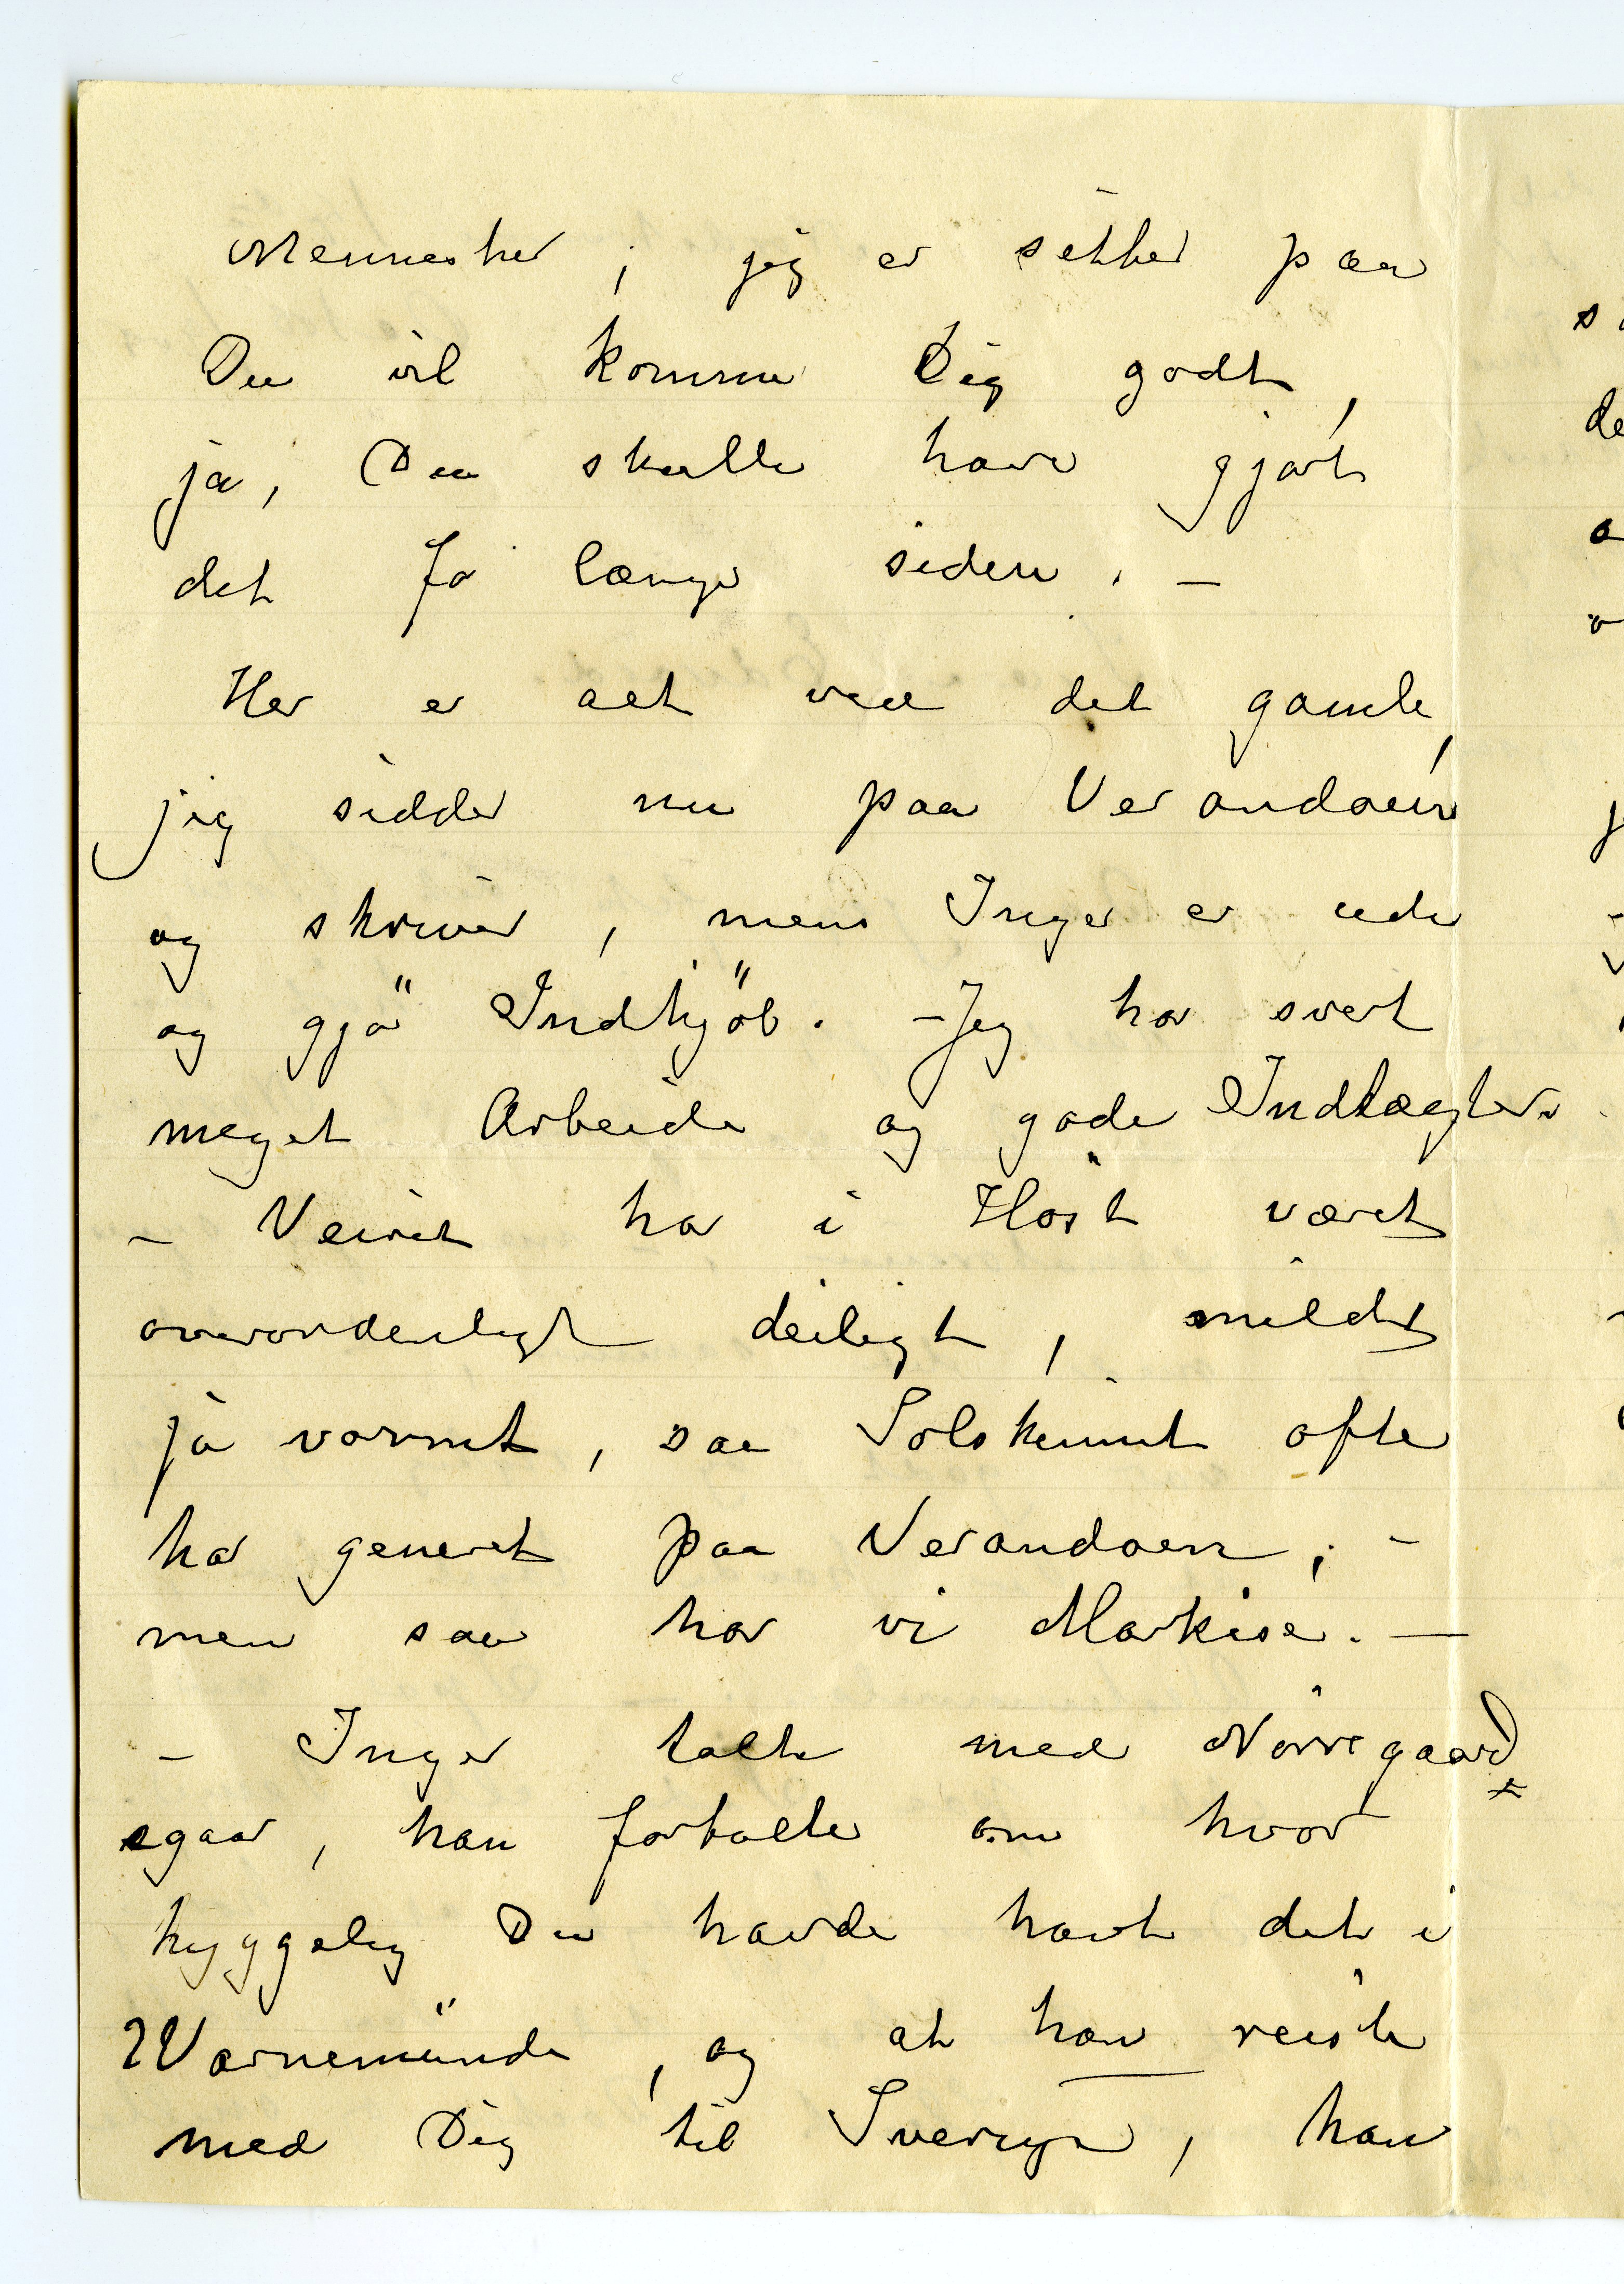 Mennesker ; jeg er sikker paa
Du vil komme Dig godt,
ja, Du skulle have gjort
det for længe siden. –
Her er alt ved det gamle,
jeg sidder nu paa Verandaen
og skriver, mens Inger er ude
og gjör Indkjöb. – Jeg har svert
meget Arbeide og gode Indtægter.
– Veiret har i Höst været
overordenligt deiligt, mildt
ja varmt, saa Solskinnet ofte
har generet paa Verandaen ; –
men saa har vi Markise. –
– Inger talte med Nörregaard
igaar, han fortalte om hvor
hyggelig Du havde havt det i
Warnemünde, og at han reiste
med Dig til Sverige, han